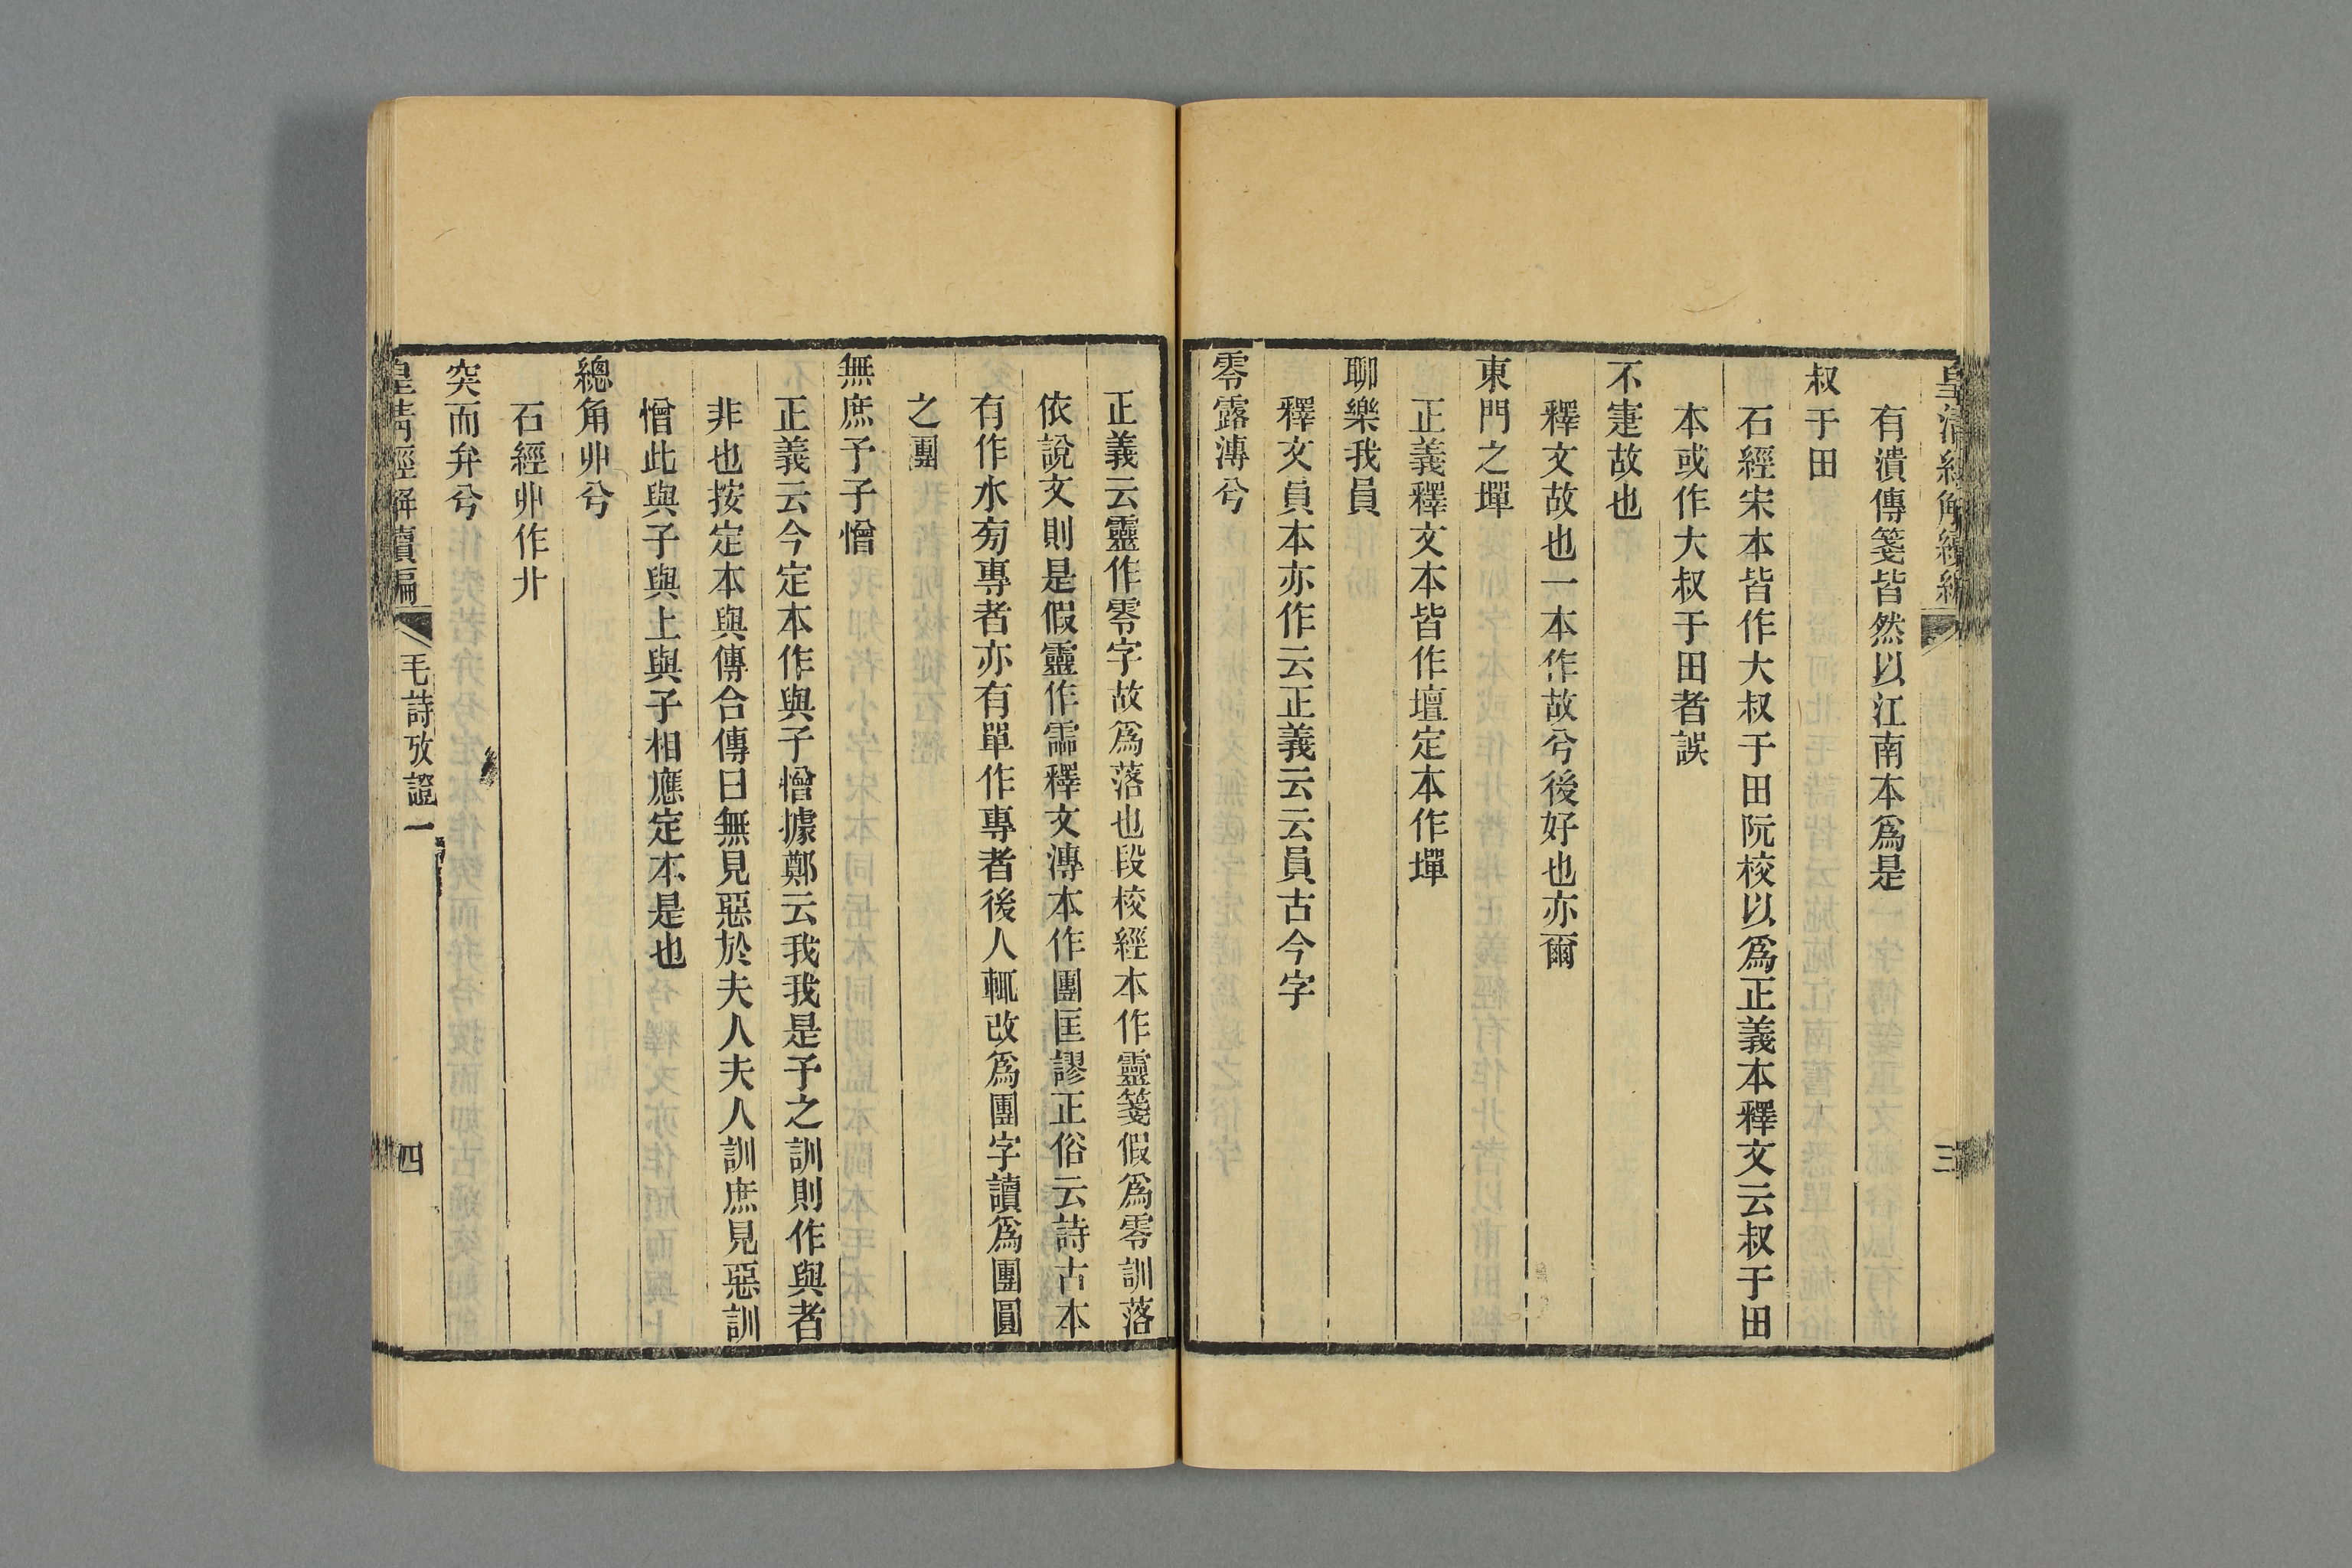 皇清經解續編
三
有潰傳箋皆然以江南本爲是
叔于田
石經宋本皆作大叔于田阮校以爲正義本釋文云叔于田
本或作大叔于田者誤
不寁故也
釋文故也一本作故兮後好也亦爾
東門之墠
正義釋文本皆作壇定本作墠
聊樂我員
釋文員本亦作云正義云云員古今字
零露漙兮
正義云靈作零字故爲落也段校經本作靈箋假爲零訓落
依說文則是假靈作霝釋文漙本作團匡謬正俗云詩古本
有作水旁專者亦有單作專者後人輒改爲團字讀爲團圓
之團
無庶予子憎
正義云今定本作與子憎據鄭云我我是予之訓則作與者
非也按定本與傳合傳曰無見惡於夫人夫人訓庶見惡訓
憎此與子與上與子相應定本是也
總角丱兮
石經丱作廾
突而弁兮
皇清經解續編
毛詩攷證一
四